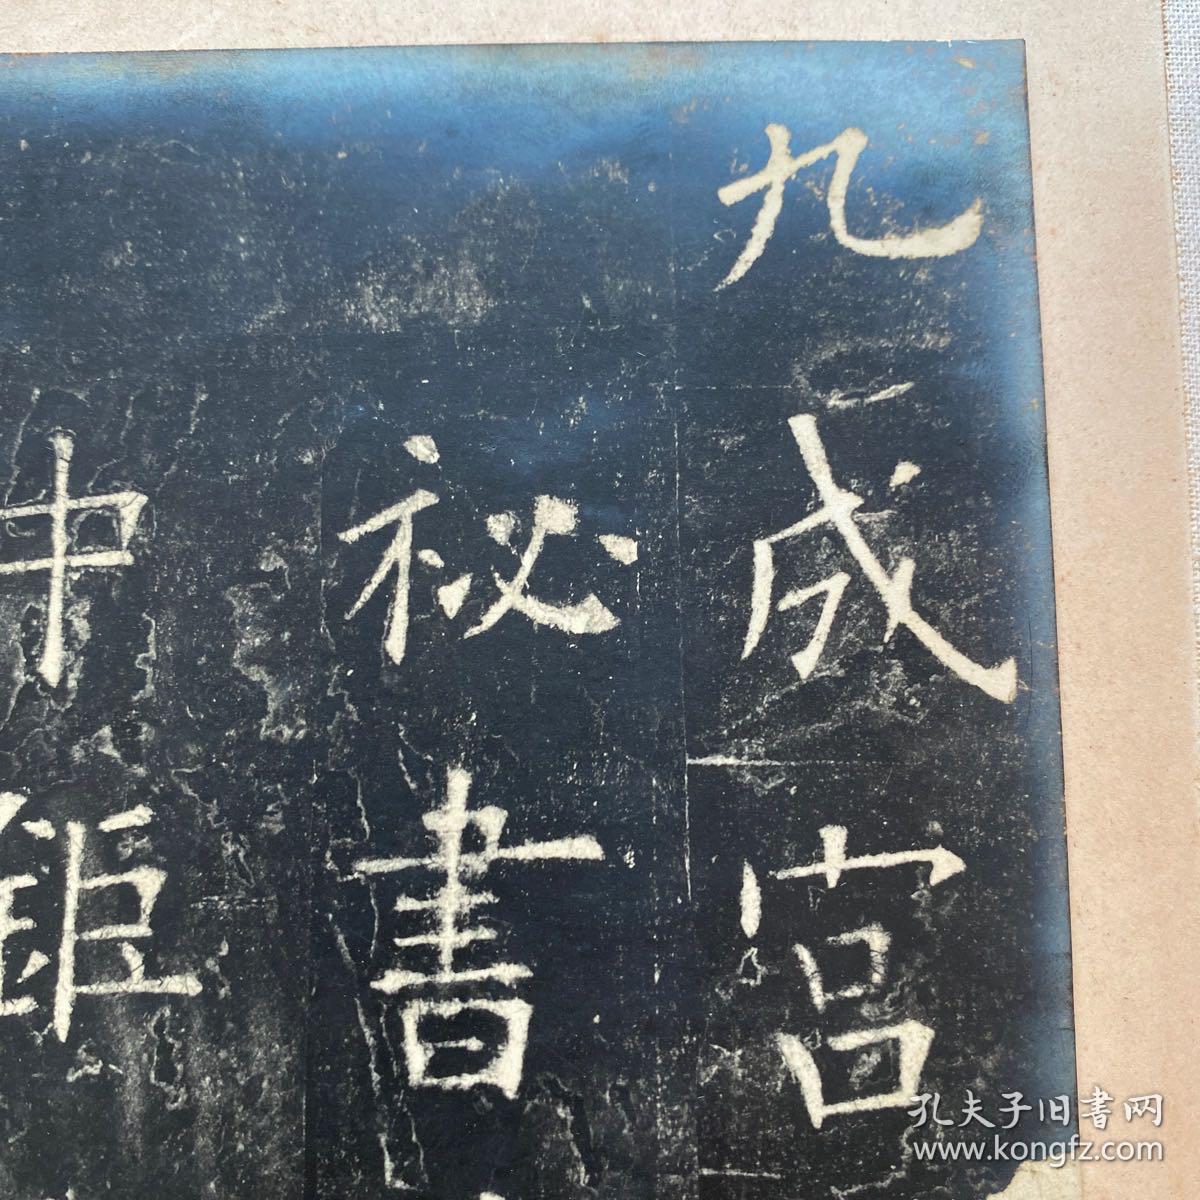 九成宮
秘書
中鉅
孔夫子旧書网
www.kongfz.com